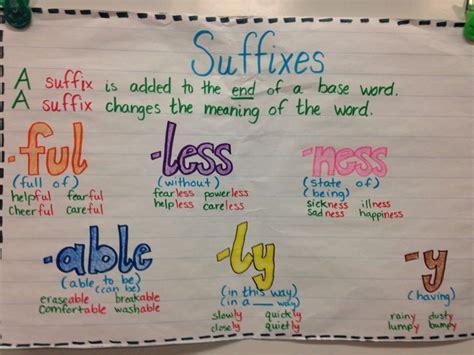 Suffixes
A suffix is added to the end of a base word.
A suffix changes the meaning of the word.
-ful
(full of)
helpful fearful
cheerful careful
-less
(without)
fearless powerless
helpless careless
-ness
(state of)
(being)
sickness illness
sadness happiness
-able
(able to be)
(can be)
eraseable breakable
comfortable washable
-ly
(in this way)
(in a ___ way)
slowly quickly
closely quietly
-y
(having)
rainy dusty
lumpy bumpy